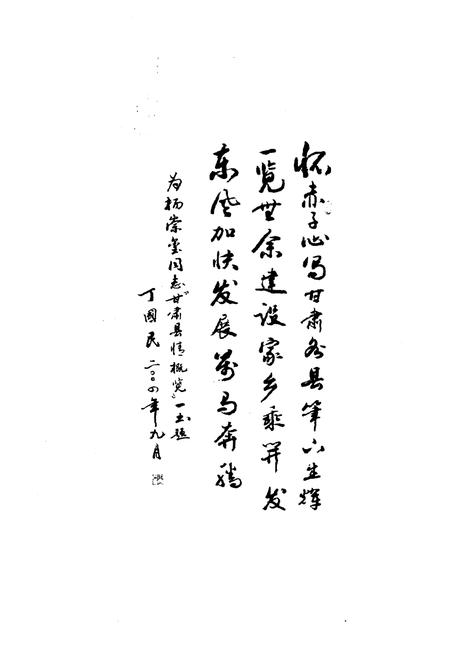 怀赤子心写甘肃各县笔下生辉
一览无余建设家乡乘开发
东风加快发展万马奔腾
为杨崇玺同志《甘肃县情概览》一书题
丁國民 二〇〇四年九月